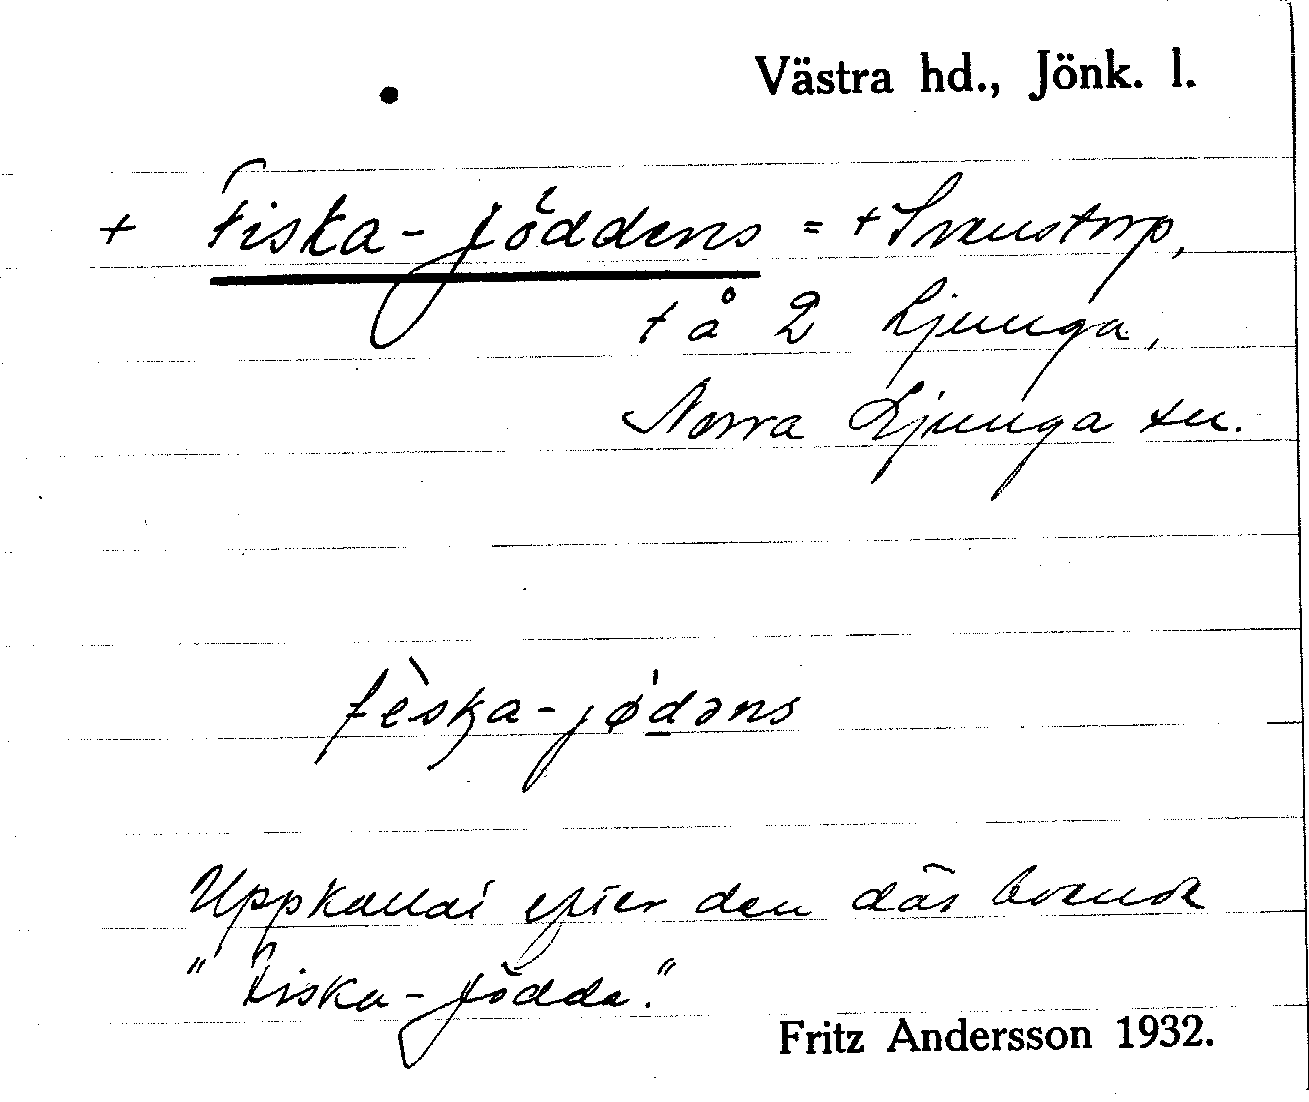 Västra hd., Jönk. l.
+ Fiska-Jöddens = + Svenstorp,
t å 2 Ljunga,
Norra Ljunga sn.
fèska-jødəns
Uppkallat efter den där boende
"Fiska-Jödde."
Fritz Andersson 1932.